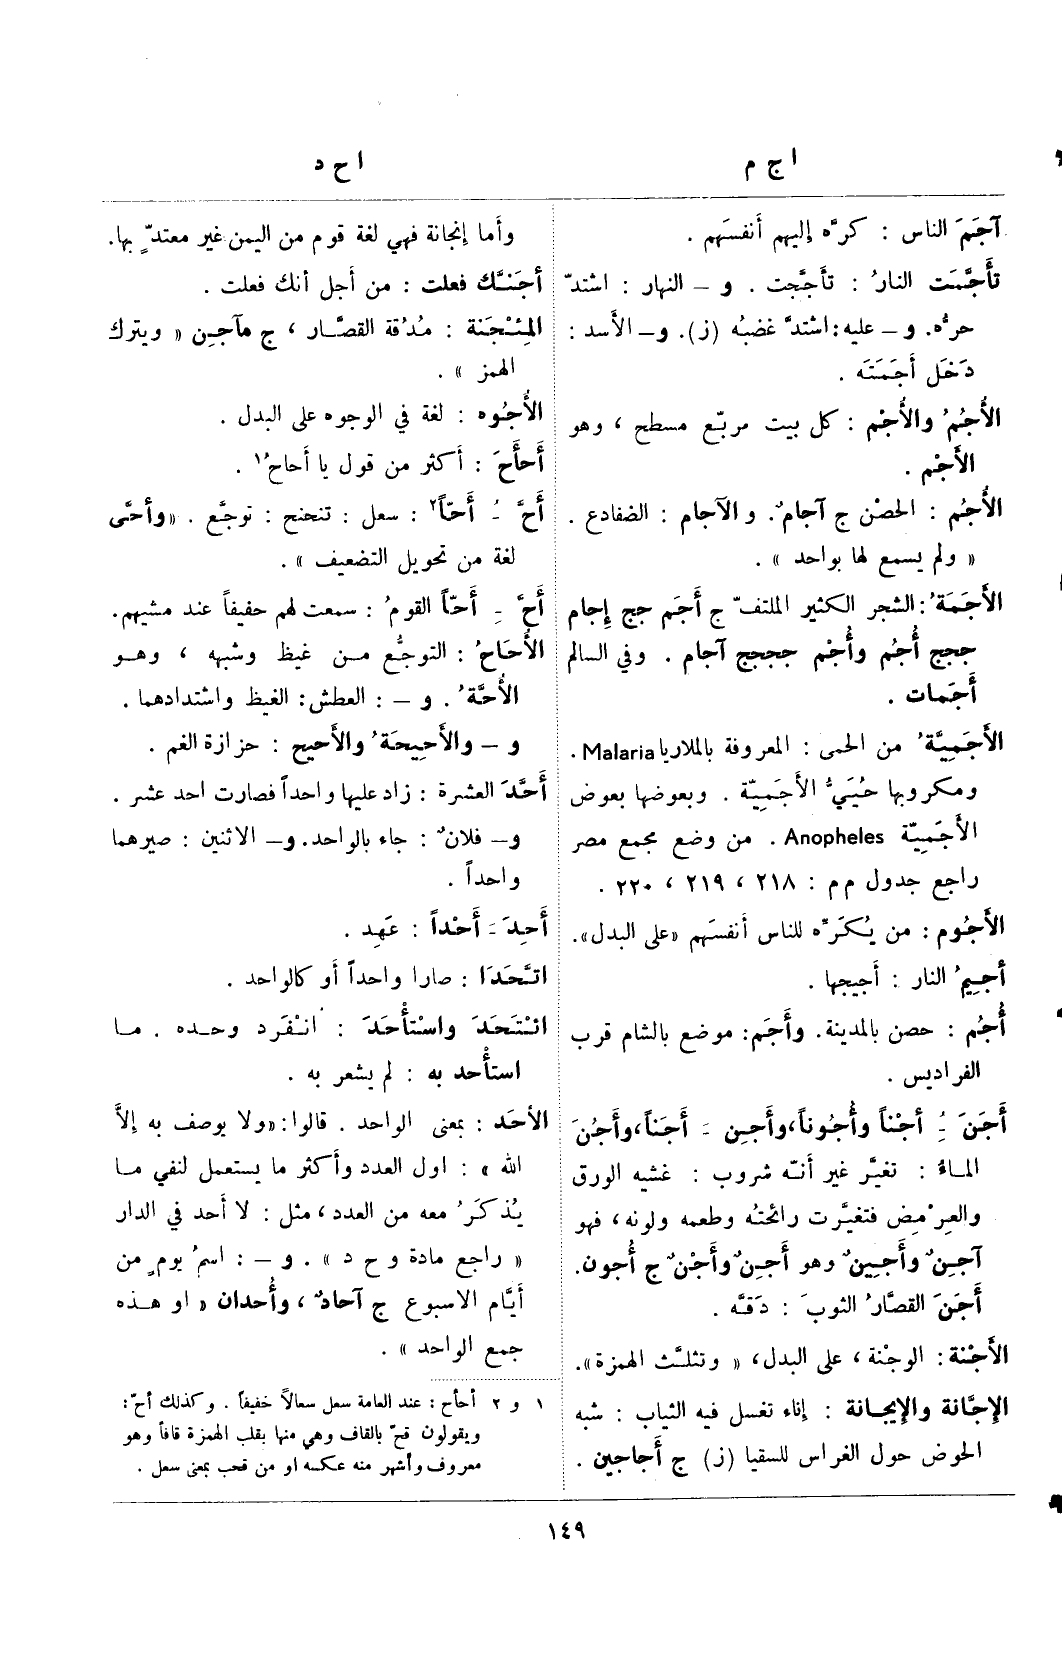 ا ج م
ا ح د
آجَمَ الناس : كرَّه إليهم أنفسَهم .
تأَجَّمَت النارُ : تأجَّجت . و – النهار : اشتدّ
حرُّه. و – عليه: اشتدَّ غضبُه (ز). و– الأسد :
دَخَل أَجَمَتَه .
الأُجُمُ والأُجْم : كل بيت مربّع مسطح ، وهو
الأَجْم .
الأُجُم : الحصْن ج آجامٌ. و الآجام : الضفادع .
« ولم يسمع لها بواحد » .
الأَجَمَةُ : الشجر الكثير الملتفّ ج أَجَم جج إِجام
ججج أُجُم وأُجْم جججج آجام . وفي السالم
أَجَمات .
الأَجَمِيَّةُ من الحمى : المعروفة بالملاريا Malaria.
ومكروبها حُيَيُّ الأَجَمِيّة . وبعوضها بعوض
الأَجَمِيّة Anopheles . من وضع مجمع مصر
راجع جدول م م : ٢١٨ ، ٢١٩ ، ٢٢٠ .
الأَجُوم : من يُكَرِّه للناس أنفسَهم «على البدل».
أجيمُ النار : أجيجها .
أُجُم : حصن بالمدينة. وأَجَم: موضع بالشام قرب
الفراديس .
أَجَنَ ـُِ أجْناً وأُجُوناً، وأَجِن ـَ أَجَناً، وأَجُنَ
المـاءُ : تغيَّر غير أنّه شروب : غشيه الورق
والعِرْمِض فتغيَّرت رائحتُه وطعمه ولونه، فهو
آجِنٌ وأَجِينٌ وهو أَجِنٌ وأَجْنٌ ج أُجون.
أَجَنَ القصَّارُ الثوبَ : دَقَّه .
الأَجْنة : الوجْنة ، على البدل، « وتثلَّث الهمزة».
الإجَّانة والإيجـانة : إناء تغسل فيه الثياب : شبه
الحوض حول الغراس للسقيا (ز) ج أَجاجين .
وأَما إنجانة فهي لغة قوم من اليمن غير معتدٍّ بها.
أجَنَّك فعلت : من أجل أنك فعلت .
المِئْجَنة : مُدُقة القصَّـار ، ج مآجِن « ويترك
الهمز » .
الأُجُوه : لغة في الوجوه على البدل .
أَحأَحَ : أكثر من قول يا أحاحُ١ .
أَحَّ ـُ أَحّاً٢ : سعل : تنحنح : توجَّع . «وأحَّى
لغة من تحويل التضعيف » .
أَحَّ ـِ أَحّاً القومُ : سمعت لهم حفيفاً عند مشيهم.
الأُحَاحُ : التوجعُّ مـن غيظ وشبهه ، وهـو
الأُحَّةُ . و – : العطش: الغيظ واشتدادهما .
و – والأَحِيحَةُ والأَحيح : حزازة الغم .
أَحَّدَ العشرة : زاد عليها واحداً فصارت احد عشر .
و– فلانٌ : جاء بالواحد. و– الاثنين : صيرهما
واحداً .
أَحِدَ ـَ أَحْداً : عَهِد .
اتَّحَدَا : صارا واحداً أو كالواحد .
ائْتَحَدَ واسْتأْحَدَ : انْفَرد وحـده . مـا
استأْحد به : لم يشعر به .
الأحَد : بمعنى الواحد . قالوا: «ولا يوصف به إلاَّ
الله » : اول العدد وأكثر ما يستعمل لنفي مـا
يُذكَرُ معه من العدد ، مثل : لا أحد في الدار
« راجع مادة و ح د » . و – : اسمُ يومٍ من
أيَّام الاسبوع ج آحادٌ ، وأُحدان « او هـذه
جمع الواحد » .
١ و ٢ أحأح : عند العامة سعل سعالاً خفيفاً . وكذلك أحّ :
ويقولون قحّ بالقاف وهي منها بقلب الهمزة قافاً وهو
معروف وأشهر منه عكسه او من قحب بمعنى سعل .
١٤٩